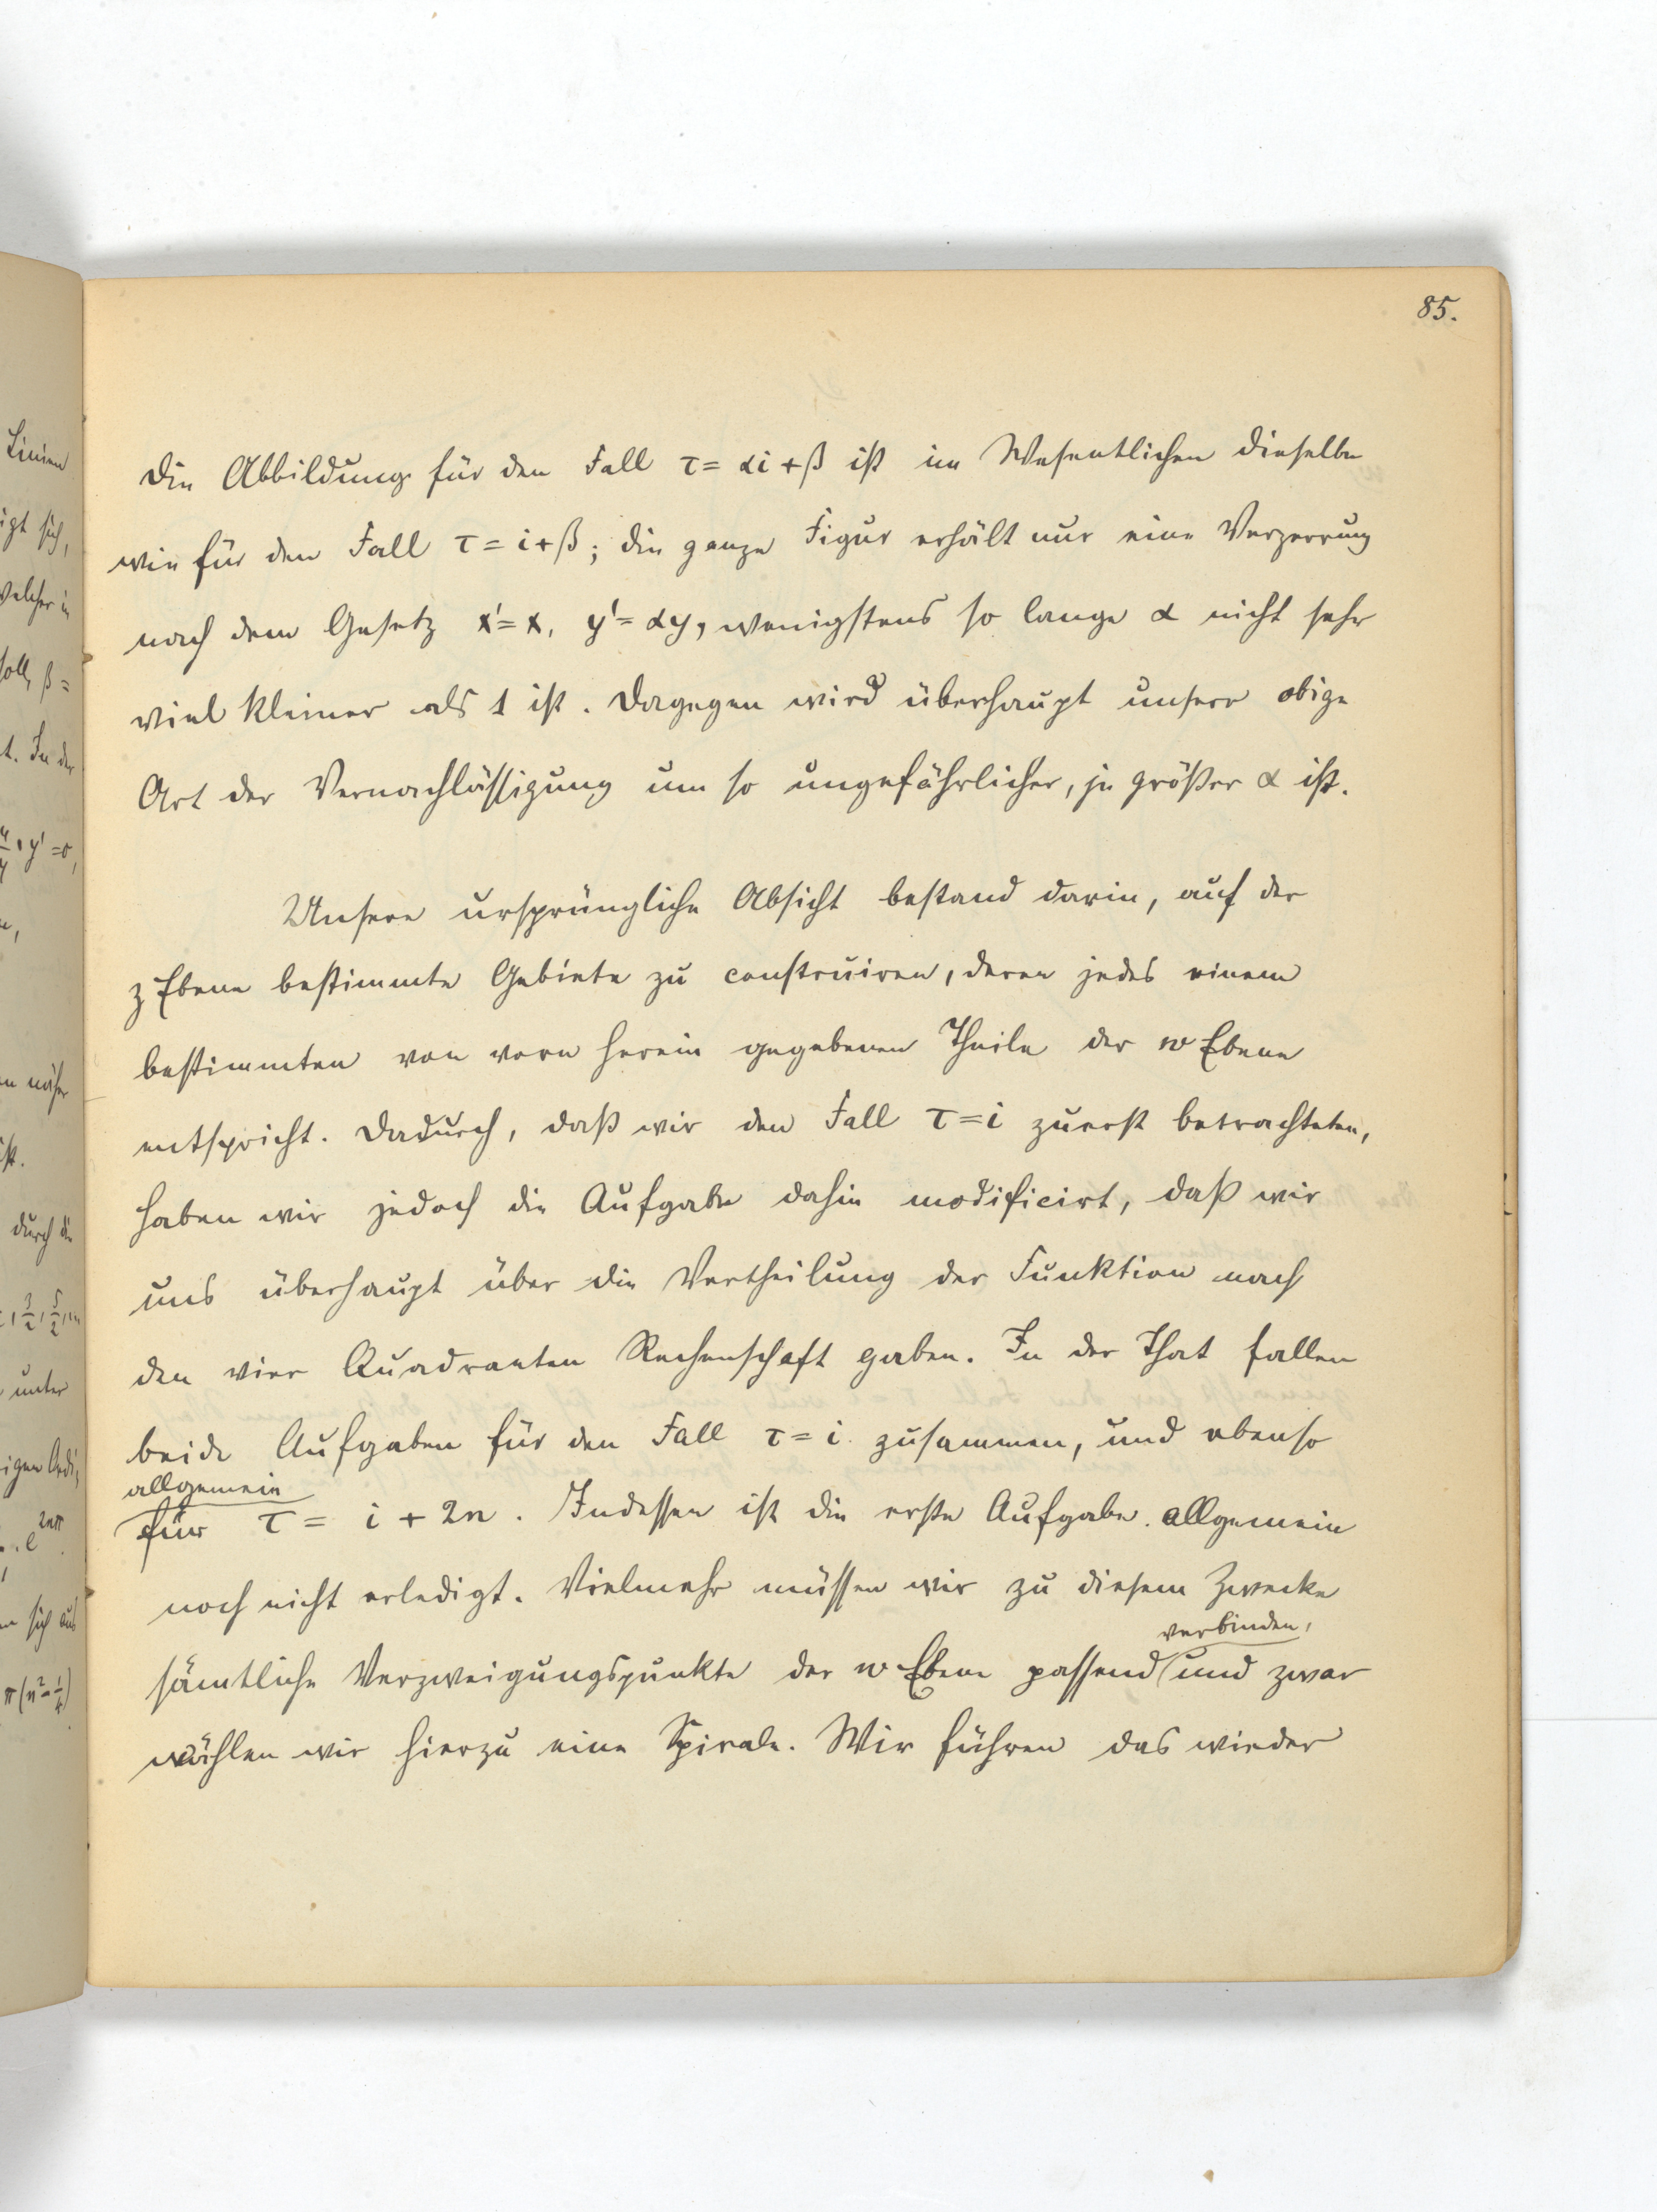 85.
Die Abbildung für den Fall τ = αi + β ist im Wesentlichen dieselbe
wie für den Fall τ = i + β; die ganze Figur erhält nur eine Verzerrung
nach dem Gesetz x' = x, y' = αy, wenigstens so lange α nicht sehr
viel kleiner als 1 ist. Dagegen wird überhaupt unsere obige
Art der Vernachlässigung um so ungefährlicher, je größer α ist.
Unsere ursprüngliche Absicht bestand darin, auf der
z Ebene bestimmte Gebiete zu construiren, deren jedes einem
bestimmten von vorn herein gegebenen Theile der w Ebene
entspricht. Dadurch, daß wir den Fall τ = i zuerst betrachteten,
haben wir jedoch die Aufgabe dahin modificirt, daß wir
uns überhaupt über die Vertheilung der Funktion nach
den vier Quadranten Rechenschaft gaben. In der That fallen
beide Aufgaben für den Fall τ = i zusammen, und ebenso
allgemein
für τ = i + 2n. Indessen ist die erste Aufgabe allgemein
noch nicht erledigt. Vielmehr müssen wir zu diesem Zwecke
verbinden,
sämtliche Verzweigungspunkte der w Ebene passend und zwar
wählen wir hierzu eine Spirale. Wir führen das wieder
Linien
igt sich,
welcher in
soll, β =
t. In der
näher
ist.
durch die
unter
sich aus